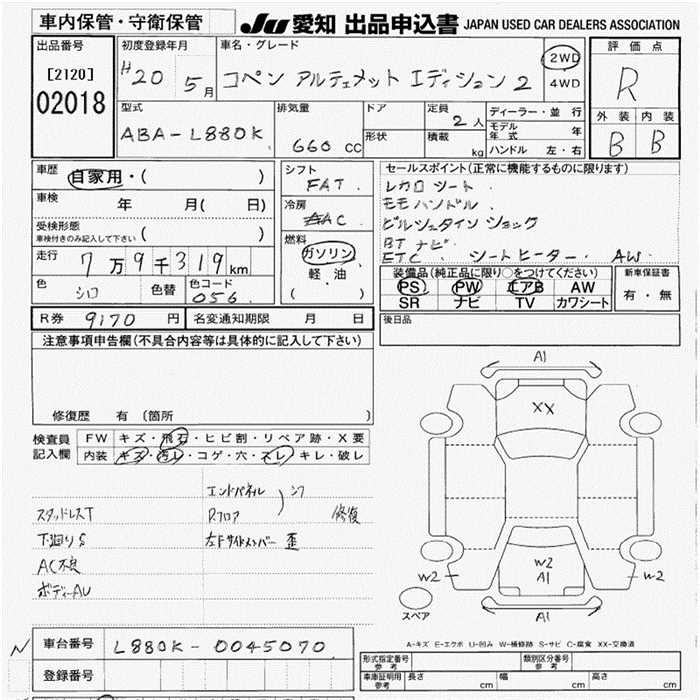 車内保管・守衛保管
JU 愛知 出品申込書 JAPAN USED CAR DEALERS ASSOCIATION
出品番号
[2120]
02018
初度登録年月
H20 5月
車名・グレード
コペン アルティメット エディション 2
2WD
4WD
評価点
R
外装 内装
B B
型式
ABA-L880K
排気量
660 CC
ドア
形状
定員
2人
積載 kg
ディーラー・並行
モデル年式 年
ハンドル 左・右
車歴
自家用・( )
車検 年 月( 日)
受検形態
車検付きのみ記入して下さい ( )
走行 7万9千319km
色 シロ 色替 色コード 056
シフト
FAT
冷房
AAC
燃料
ガソリン
軽油
( )
セールスポイント(正常に機能するものに限ります)
レカロ シート.
モモ ハンドル.
ビルシュタイン ショック
BT ナビ.
ETC. シートヒーター. AW.
装備品(純正品に限り○をつけてください)
PS PW エアB AW
SR ナビ TV カワシート
新車保証書
有・無
R券 9170 円 名変通知期限 月 日
後日品
注意事項申告欄(不具合内容等は具体的に記入して下さい)
修復歴 有(箇所 )
検査員記入欄
FW キズ・飛石・ヒビ割・リペア跡・X要
内装 キズ・汚レ・コゲ・穴・スレ・キレ・破レ
エンドパネル
スタッドレスT Rフロア 修復
下廻りS 左Fサイドメンバー 歪
AC不良
ボディーAU
A1
XX
W2
A1
W2
W2
A1
スペア
A-キズ E-エクボ U-凹み W-補修跡 S-サビ C-腐食 XX-交換済
車台番号 L880K-0045070
登録番号
形式指定番号 参考 類別区分番号 参考
車庫証明用 参考 長さ cm 幅 cm 高さ cm